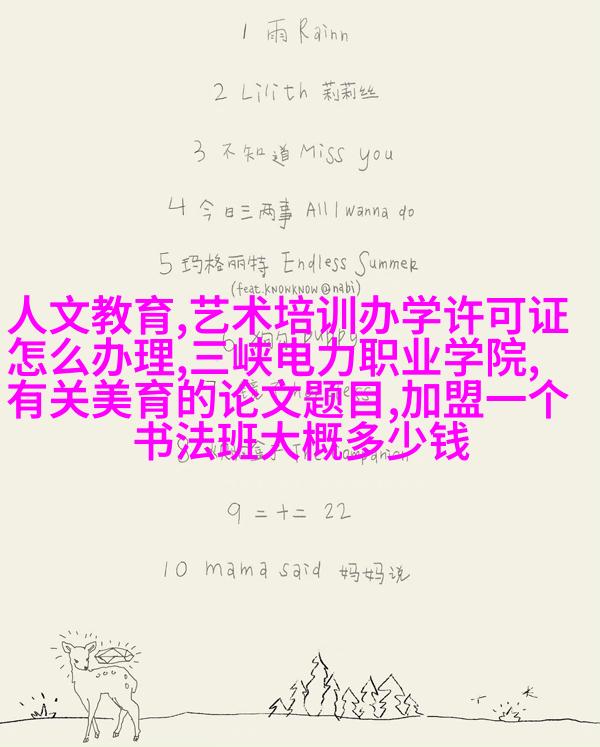 1 雨 Rainn
2 Lilith 莉莉丝
3 不知道 Miss you
4 今日三两事 All I wanna do
5 玛格丽特 Endless Summer
(feat.KNOWKNOW@nabi)
人文教育,艺术培训办学许可证
怎么办理,三峡电力职业学院,
有关美育的论文题目,加盟一个
书法班大概多少钱
9 二十二 22
10 mama said 妈妈说